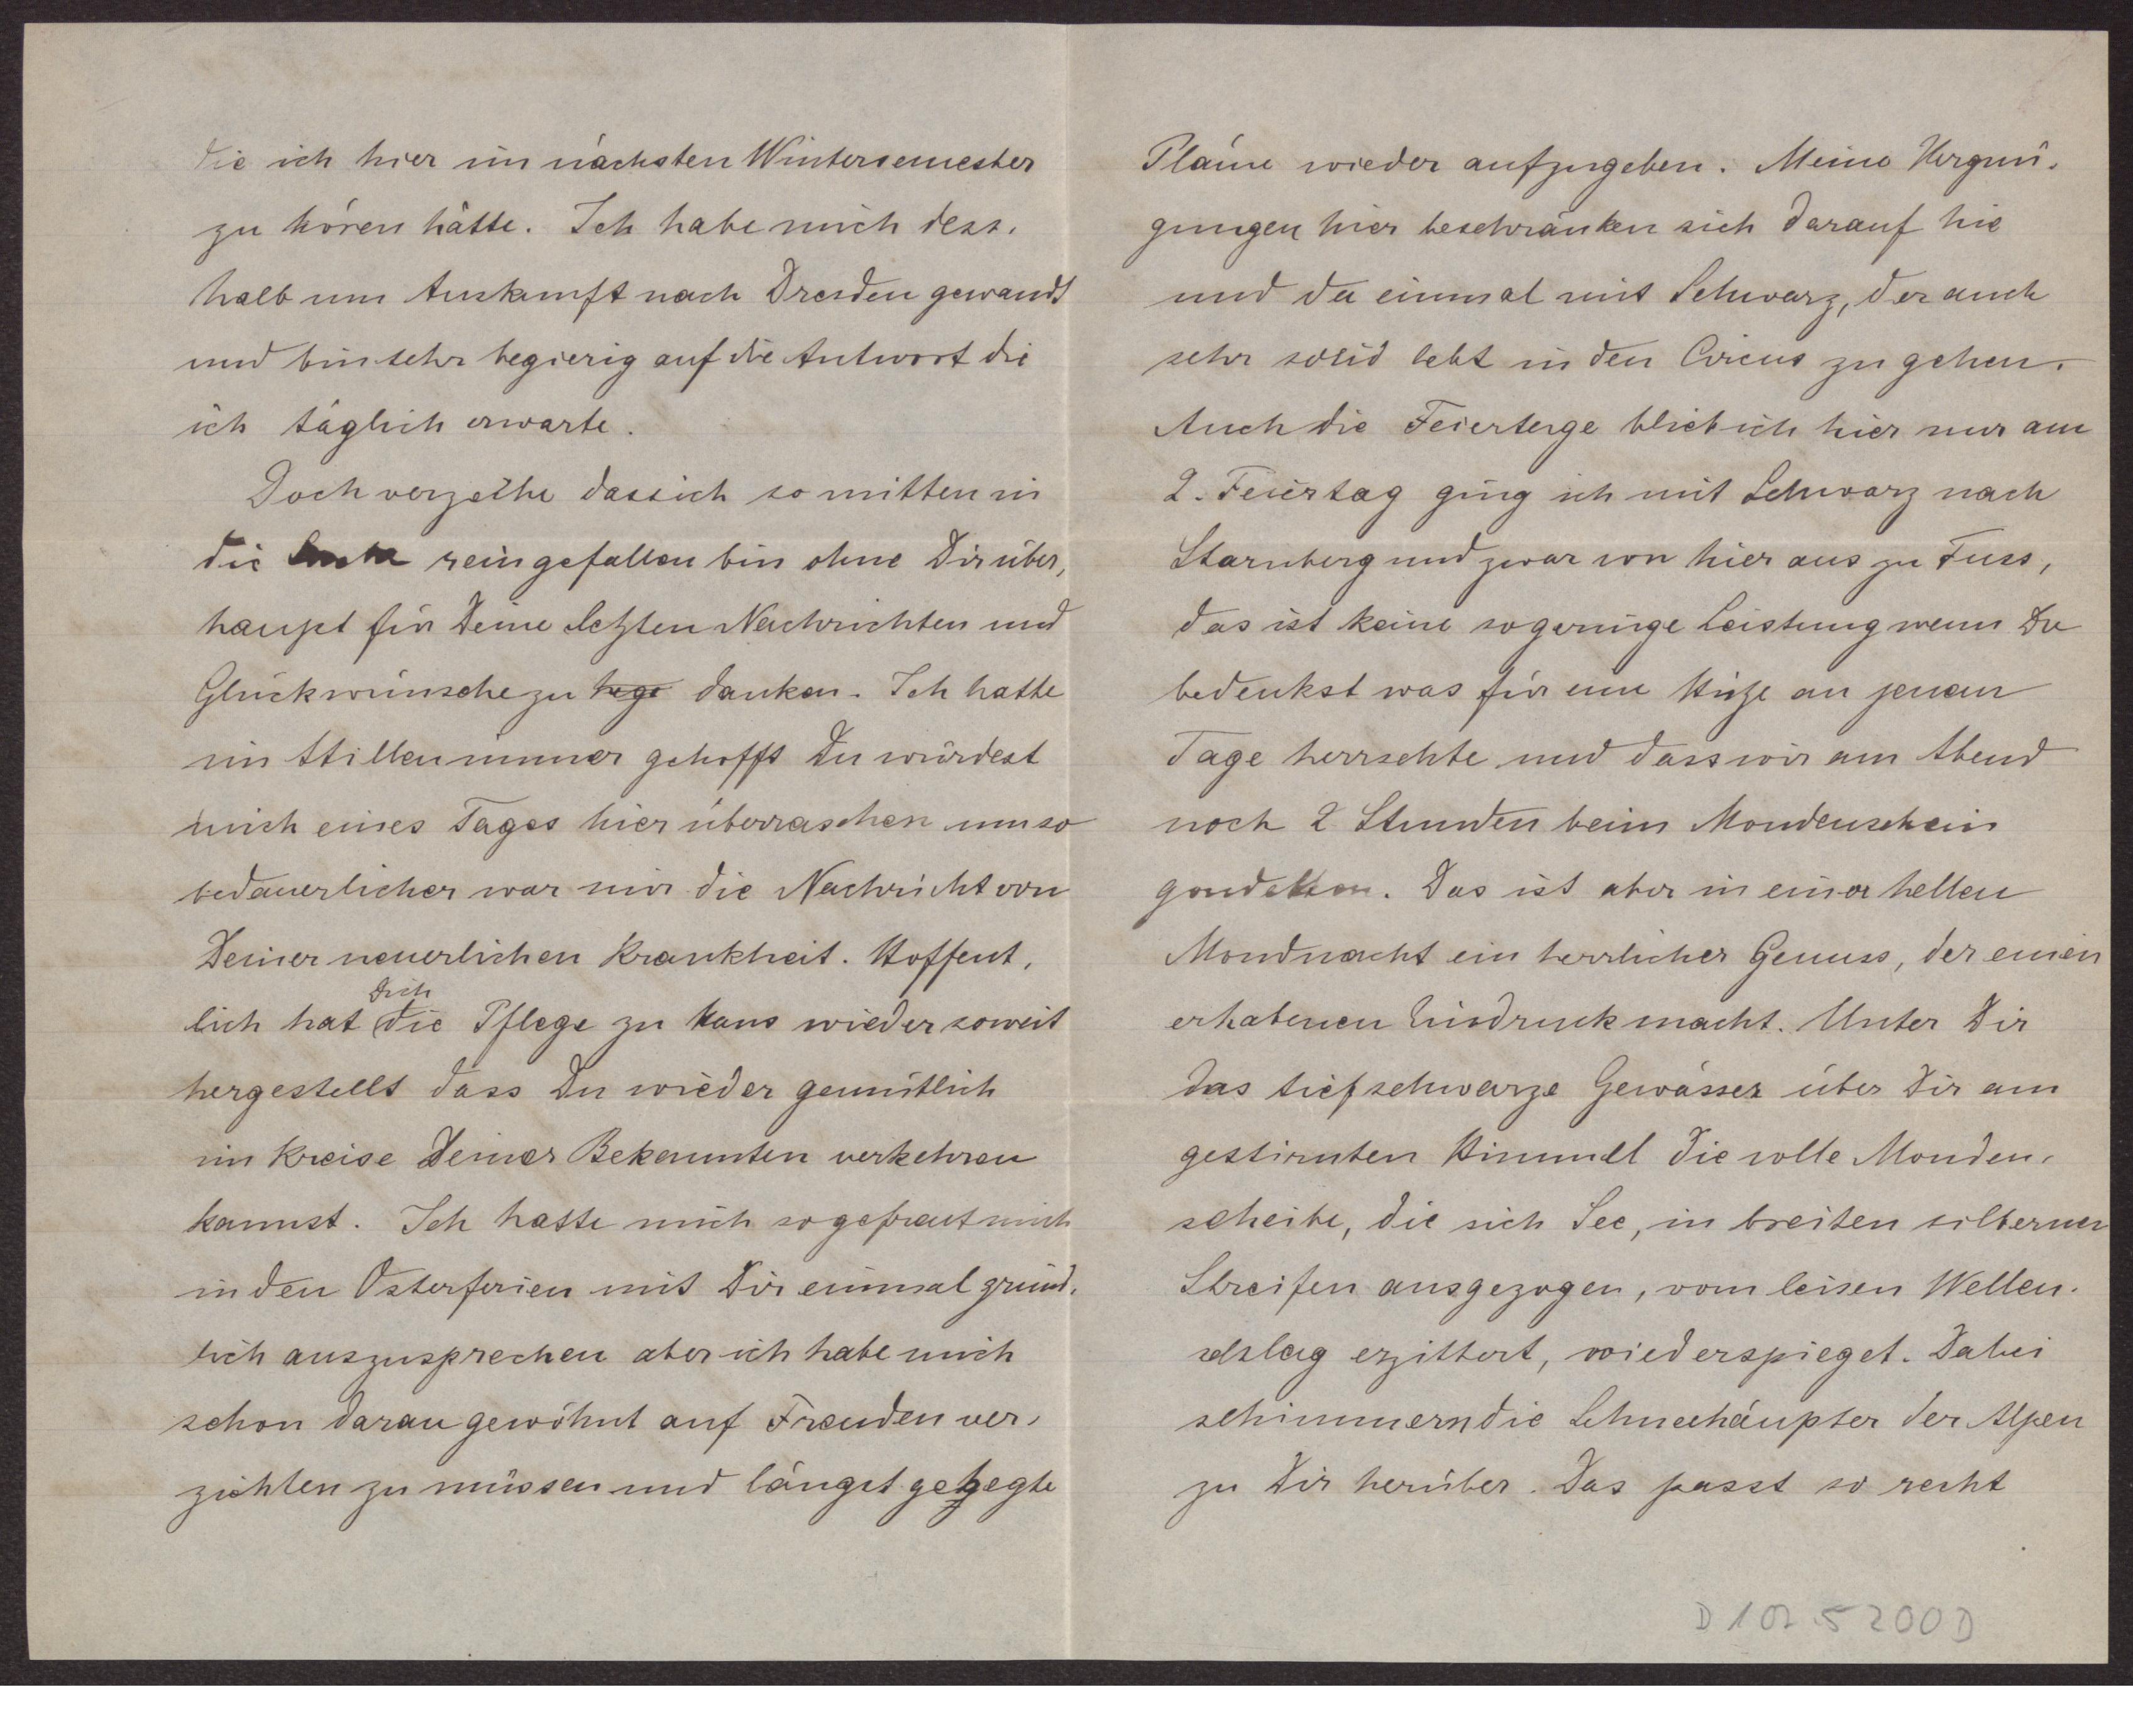 die ich hier im nächsten Wintersemester
zu hören hätte. Ich habe mich dess,
halb um Auskunft nach Dresden gewandt
und bin sehr begierig auf die Antwort die
ich täglich erwarte.
Doch verzeihe dass ich so mitten in
die reingefallen bin ohne Dir über,
haupt für Deine letzten Nachrichten und
Glückwünsche zu hege danken. Ich hatte
im Stillen immer gehofft Du würdest
mich eines Tages hier überraschen um so
bedauerlicher war mir die Nachricht von
Deiner neuerlichen Krankheit. Hoffent,
lich hat Dich die Pflege zu Haus wieder soweit
hergestellt dass Du wieder gemütlich
im Kreise Deiner Bekannten verkehren
kannst. Ich hatte mich so gefreut mich
in den Osterferien mit Dir einmal gründ,
lich auszusprechen aber ich habe mich
schon daran gewöhnt auf Freuden ver,
zichten zu müssen und längst gehegte
Pläne wieder aufzugeben. Meine Vergnü,
gungen hier beschränken sich darauf hie
und da einmal mit Schwarz, der auch
sehr solid lebt in den Circus zu gehen.
Auch die Feiertage blieb ich hier nur am
2. Feiertag ging ich mit Schwarz nach
Starnberg und zwar von hier aus zu Fuss,
das ist keine so geringe Leistung wenn Du
bedenkst was für eine Hitze an jenem
Tage herrschte und dass wir am Abend
noch 2 Stunden beim Mondenschein
gondelten. Das ist aber in einer hellen
Mondnacht ein herrlicher Genuss, der einen
erhabenen Eindruck macht. Unter Dir
das tiefschwarze Gewässer über Dir am
gestirnten Himmel die volle Monden,
scheibe, die sich See, in breiten silbernen
Streifen ausgezogen, vom leisen Wellen,
schlag erzittert, wiederspieget. Dabei
schimmern die Schneehäupter der Alpen
zu Dir herüber. Das passt so recht
D 107.5200D